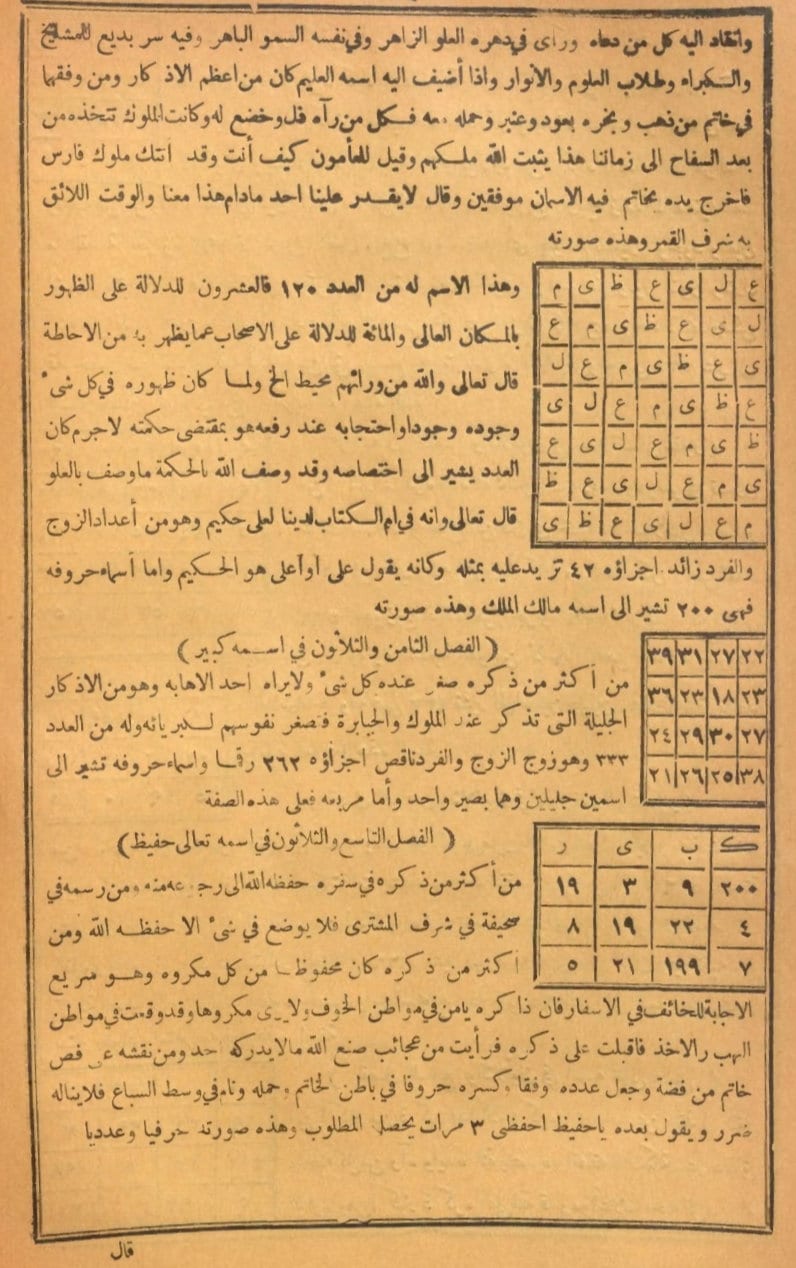 وانقاد اليه كل من دعاه ورأى في دهره العلو الزاهر وفي نفسه السمو الباهر وفيه سر بديع للمشايخ
والكبراء وطلاب العلوم والأنوار واذا أضيف اليه اسمه العليم كان من اعظم الاذكار ومن وفقهما
في خاتم من ذهب وبخره بعود وعنبر وحمله معه فكل من رآه ذل وخضع له وكانت الملوك تتخذه من
بعد السفاح الى زماننا هذا يثبت الله ملكهم وقيل للمأمون كيف أنت وقد اتتك ملوك فارس
فاخرج يده بخاتم فيه الاسمان موفقين وقال لا يقدر علينا احد مادام هذا معنا والوقت اللائق
به شرف القمر وهذه صورته
ع ل ى ع ظ ى م
ل ى ع ظ ى م ع
ى ع ظ ى م ع ل
ع ظ ى م ع ل ى
ظ ى م ع ل ى ع
ى م ع ل ى ع ظ
م ع ل ى ع ظ ى
وهذا الاسم له من العدد ١٢٠ فالعشرون للدلالة على الظهور
بالمكان العالى والمائة للدلالة على الاصحاب عما يظهر به من الاحاطة
قال تعالى والله من ورائهم محيط الخ ولما كان ظهوره في كل شىء
وجوده وجودا واحتجابه عند رفعه هو بمقتضى حكمته لاجرم كان
العدد يشير الى اختصاصه وقد وصف الله بالحكمة ما وصف بالعلو
قال تعالى وانه في ام الكتاب لدينا لعلى حكيم وهو من أعداد الزوج
والفرد زائد اجزاؤه ٤٢ تزيد عليه بمثله وكانه يقول على أو أعلى هو الحكيم واما أسماء حروفه
فهى ٢٠٠ تشير الى اسمه مالك الملك وهذه صورته
٢٢ ٢٧ ٣١ ٣٩
٢٣ ١٨ ٢٣ ٣٦
٢٧ ٣٠ ٢٩ ٢٤
٣٨ ٢٥ ٢٦ ٢١
( الفصل الثامن والثلاثون في اسمه كبير )
من أكثر من ذكره صغر عنده كل شىء ولا يراه احد الا هابه وهو من الاذكار
الجليلة التى تذكر عند الملوك والجبابرة فتصغر نفوسهم لكبريائه وله من العدد
٣٣٣ وهو زوج الزوج والفرد ناقص اجزاؤه ٢٦٢ رقما واسماء حروفه تشير الى
اسمين جليلين وهما بصير واحد وأما مربعه فعلى هذه الصفة
ك ب ى ر
٢٠٠ ٩ ٣ ١٩
٤ ٢٢ ١٩ ٨
٧ ١٩٩ ٢١ ٥
( الفصل التاسع والثلاثون في اسمه تعالى حفيظ )
من أكثر من ذكره في سفره حفظه الله الى رجوعه منه ومن رسمه في
صحيفة في شرف المشترى فلا يوضع في شىء الا حفظه الله ومن
اكثر من ذكره كان محفوظا من كل مكروه وهو سريع
الاجابة للخائف في الاسفار فان ذاكره يامن في مواطن الخوف ولا يرى مكروها وقد وقعت في مواطن
النهب والاخذ فاقبلت على ذكره فرأيت من عجائب صنع الله مالا يدركه احد ومن نقشه على فص
خاتم من فضة وجعل عدده وفقا وكسره حروفا في باطن الخاتم وحمله ونام في وسط السباع فلا يناله
ضرر ويقول بعده ياحفيظ احفظنى ٣ مرات يحصل المطلوب وهذه صورته حرفيا وعدديا
قال